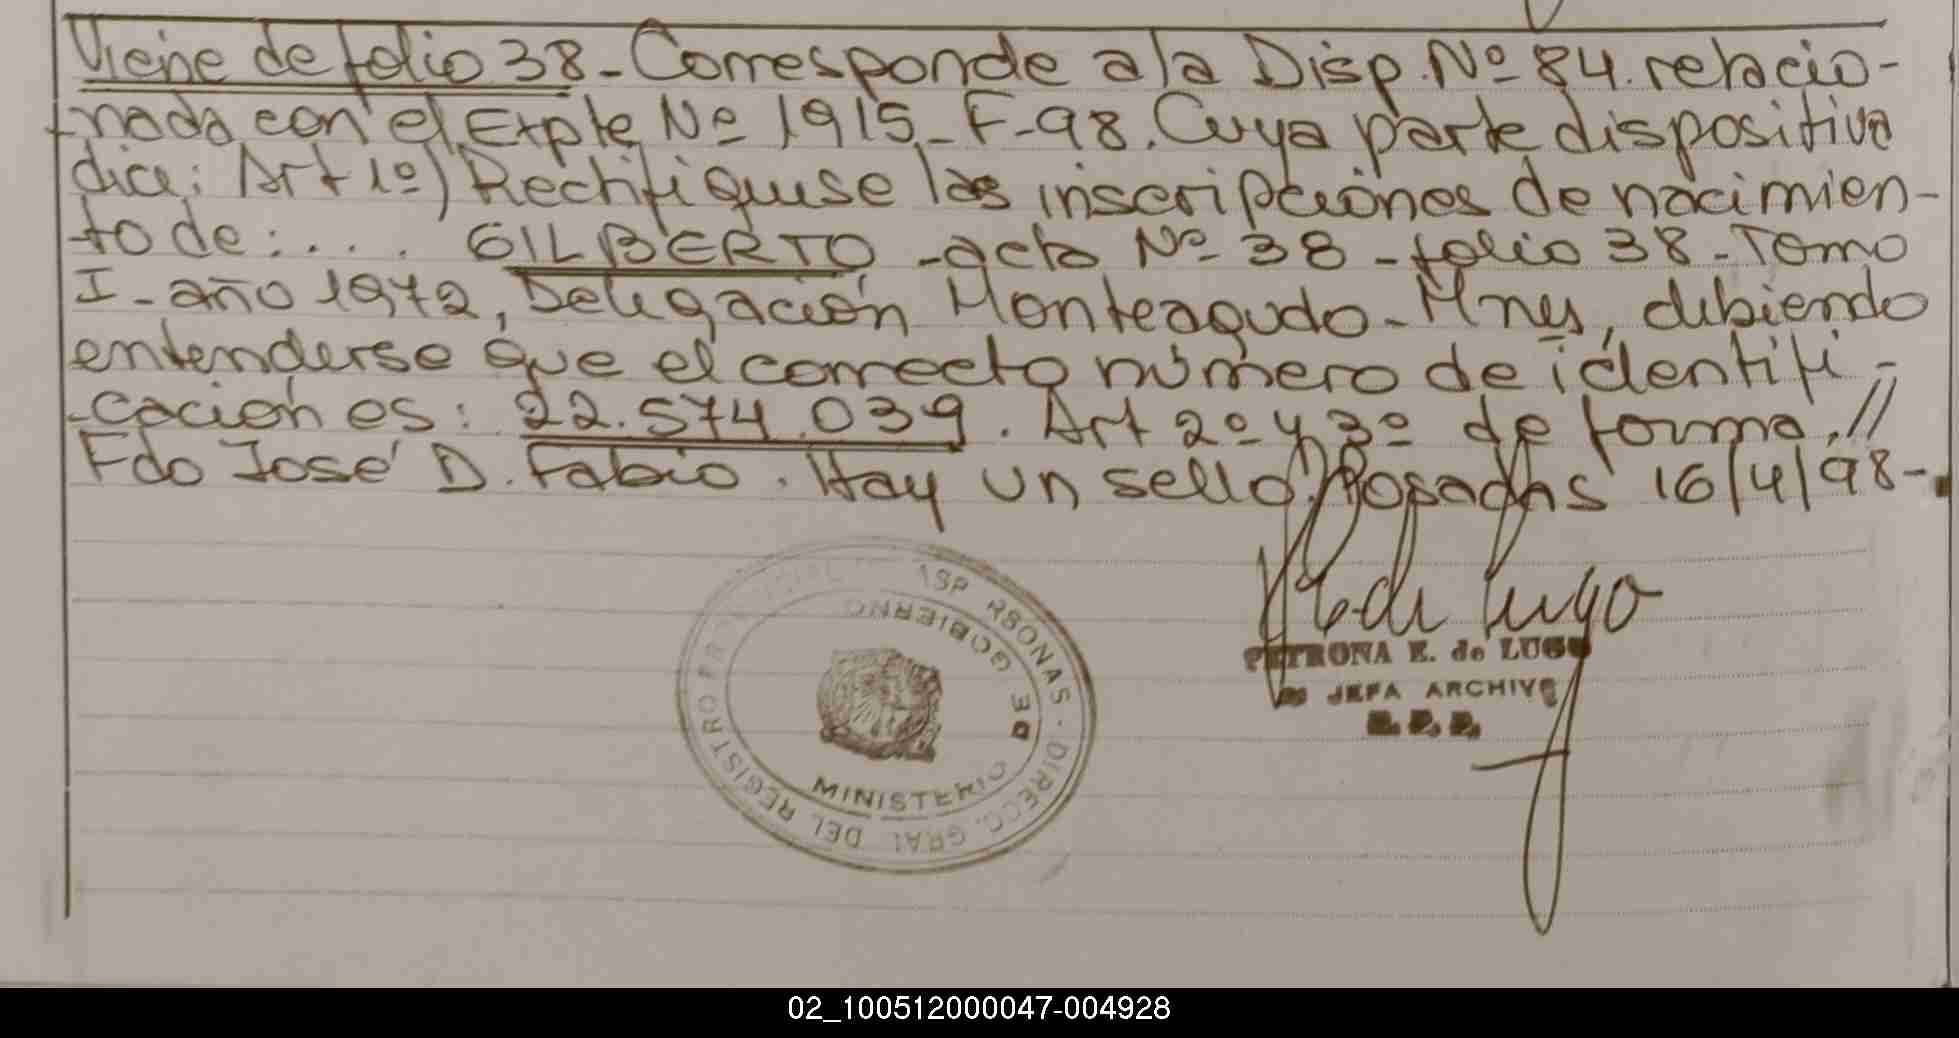 Viene de folio 38 - Corresponde a la Disp. Nº 84. relacio-
-nada con el Expte Nº 1915 - F - 98. Cuya parte dispositiva
dice: Art 1º) Rectifiquese las inscripciones de nacimien-
to de: .... GILBERTO - acta Nº 38 - folio 38 - Tomo
I - año 1972, Delegación Monteagudo - Mnes, debiendo
entenderse que el correcto número de identifi-
-cación es: 22.574.039. Art 2º y 3º de forma. //
Fdo José D. Fabio. Hay un sello. Posadas 16/4/98 -
DIRECC. GRAL DEL REGISTRO
MINISTERIO DE GOBIERNO
PETRONA E. de LUGO
JEFA ARCHIVO
02_100512000047-004928